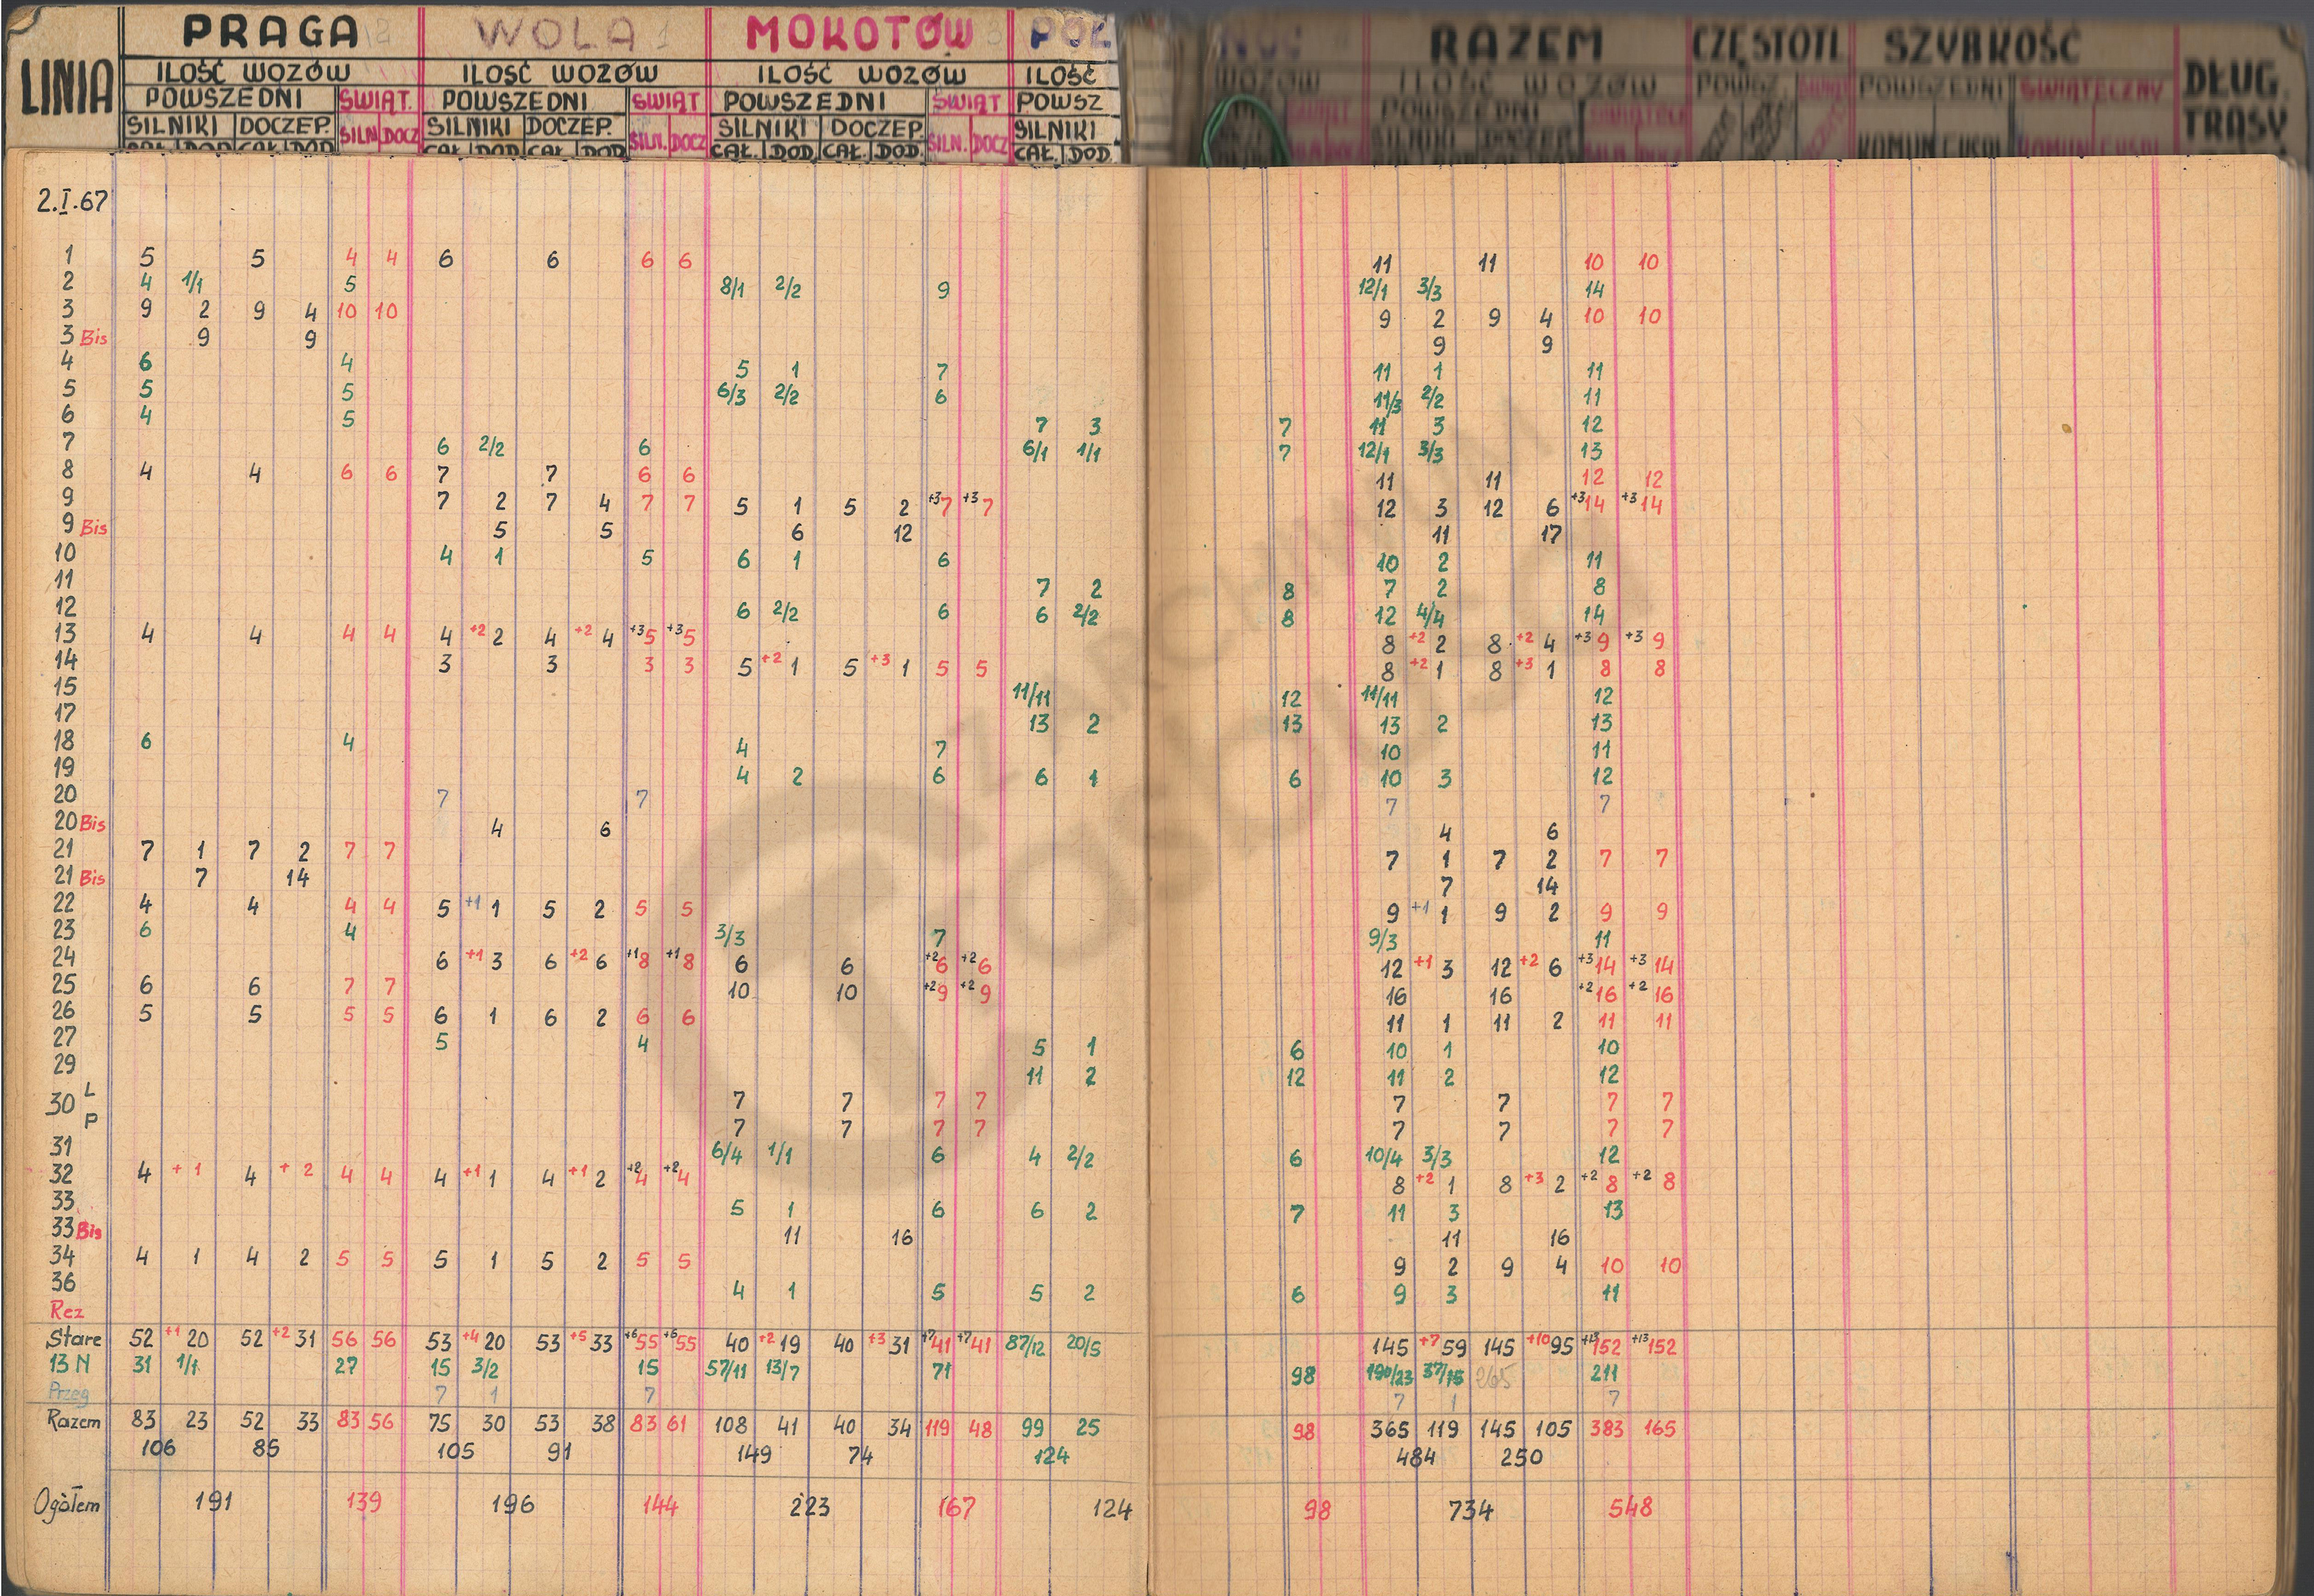 LINIA PRAGA WOLA MOKOTÓW PÓŁ RAZEM CZĘSTOTL SZYBKOŚĆ DŁUG. TRASY
ILOŚĆ WOZÓW ILOŚĆ WOZÓW ILOŚĆ WOZÓW ILOŚĆ WOZÓW ILOŚĆ WOZÓW
POWSZEDNI ŚWIĄT. POWSZEDNI ŚWIĄT POWSZEDNI ŚWIĄT POWSZ ŚWIĄT POWSZEDNI ŚWIĄTECZ POWSZ. ŚWIĄT POWSZEDNI ŚWIĄTECZNY
SILNIKI DOCZEP. SILN DOCZ SILNIKI DOCZEP. SILN. DOCZ SILNIKI DOCZEP. SILN. DOCZ SILNIKI SILNIKI DOCZEP KOMUN. KOMUN
CAŁ. DOD CAŁ. DOD CAŁ. DOD CAŁ. DOD CAŁ. DOD. CAŁ. DOD. CAŁ. DOD.
2.I.67
1 5 5 4 4 6 6 6 6 11 11 10 10
2 4 1/1 5 8/1 2/2 9 12/1 3/3 14
3 9 2 9 4 10 10 9 2 9 4 10 10
3 Bis 9 9 9 9
4 6 4 5 1 7 11 1 11
5 5 5 6/3 2/2 6 11/3 2/2 11
6 4 5 7 3 7 11 3 12
7 6 2/2 6 6/1 1/1 7 12/1 3/3 13
8 4 4 6 6 7 7 6 6 11 11 12 12
9 7 2 7 4 7 7 5 1 5 2 +3 7 +3 7 12 3 12 6 +3 14 +3 14
9 Bis 5 5 6 12 11 17
10 4 1 5 6 1 6 10 2 11
11 7 2 8 7 2 8
12 6 2/2 6 6 2/2 8 12 4/4 14
13 4 4 4 4 4 +2 2 4 +2 4 +3 5 +3 5 8 +2 2 8 +2 4 +3 9 +3 9
14 3 3 3 3 5 +2 1 5 +3 1 5 5 8 +2 1 8 +3 1 8 8
15 11/11 12 11/11 12
17 13 2 13 13 2 13
18 6 4 4 7 10 11
19 4 2 6 6 1 6 10 3 12
20 7 7 7 7
20 Bis 4 6 4 6
21 7 1 7 2 7 7 7 1 7 2 7 7
21 Bis 7 14 7 14
22 4 4 4 4 5 +1 1 5 2 5 5 9 +1 1 9 2 9 9
23 6 4 3/3 7 9/3 11
24 6 +1 3 6 +2 6 +1 8 +1 8 6 6 +2 6 +2 6 12 +1 3 12 +2 6 +3 14 +3 14
25 6 6 7 7 10 10 +2 9 +2 9 16 16 +2 16 +2 16
26 5 5 5 5 6 1 6 2 6 6 11 1 11 2 11 11
27 5 4 5 1 6 10 1 10
29 11 2 12 11 2 12
30 L 7 7 7 7 7 7 7 7
P 7 7 7 7 7 7 7 7
31 6/4 1/1 6 4 2/2 6 10/4 3/3 12
32 4 +1 4 +2 4 4 4 +1 1 4 +1 2 +2 4 +2 4 8 +2 1 8 +3 2 +2 8 +2 8
33 5 1 6 6 2 7 11 3 13
33 Bis 11 16 11 16
34 4 1 4 2 5 5 5 1 5 2 5 5 9 2 9 4 10 10
36 4 1 5 5 2 6 9 3 11
Rez
Stare 52 +1 20 52 +2 31 56 56 53 +4 20 53 +5 33 +6 55 +6 55 40 +2 19 40 +3 31 +7 41 +7 41 87/12 20/5 145 +7 59 145 +10 95 +13 152 +13 152
13 N 31 1/1 27 15 3/2 15 57/11 13/7 71 98 190/23 37/15 265 211
Przeg 7 1 7 7 1 7
Razem 83 23 52 33 83 56 75 30 53 38 83 61 108 41 40 34 119 48 99 25 98 365 119 145 105 383 165
106 85 105 91 149 74 124 484 250
Ogółem 191 139 196 144 223 167 124 98 734 548